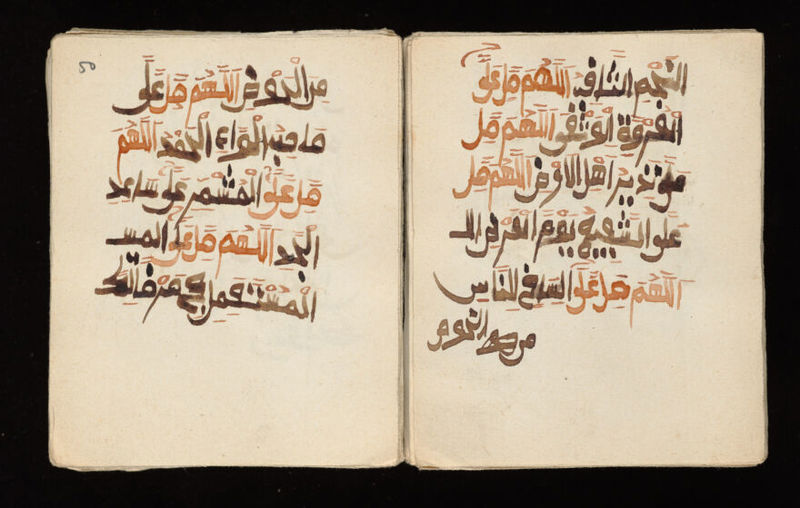 النجم الثاقب اللهم صل على
العروة الوثقى اللهم صل
على نذير اهل الارض اللهم صل
على الشفيع يوم العرض الـ
اللهم صل على الساقي للناس
من الحوض
50
من الحوض اللهم صل على
صاحب الواء الحمد اللهم
صل على المشمر على ساعد
الجد اللهم صل على المسـ
المستعمل في مرضاتك